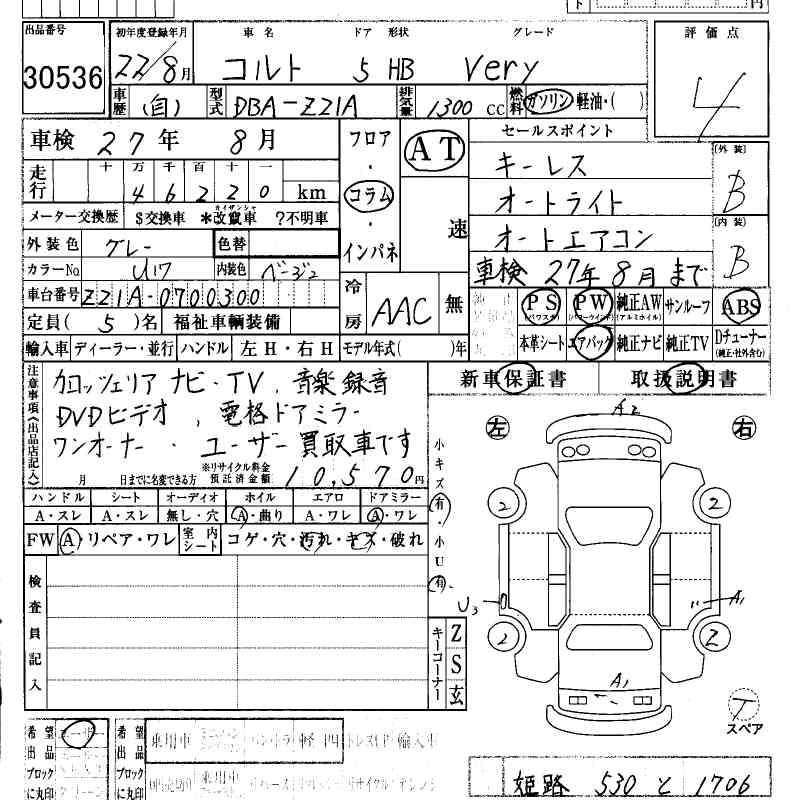 円
出品番号 初年度登録年月 車名 ドア 形状 グレード 評価点
30536 22/8月 コルト 5 HB Very 4
車歴 (自) 型式 DBA-Z21A 排気量 1300 cc 燃料 ガソリン・軽油・( )
車検 27年 8月 フロア・コラム・インパネ AT 速 セールスポイント
走行 十 万 千 百 十 一 〔外装〕 B
4 6 2 2 0 km キーレス
メーター交換歴 $交換車 *改竄車 ?不明車 オートライト
カイザンシャ
外装色 グレー 色替 オートエアコン 〔内装〕 B
カラーNo U17 内装色 ベージュ 車検 27年8月まで
車台番号 Z21A-0700300 冷房 AAC 無 PS PW 純正AW サンルーフ ABS
(パワステ) (パワーウインド) (アルミホイル)
定員( 5 )名 福祉車輌装備 本革シート エアバック 純正ナビ 純正TV Dチューナー
(純正・社外含む)
輸入車 ディーラー・並行 ハンドル 左H・右H モデル年式( )年
新車保証書 取扱説明書
注意事項(出品店記入)
カロッツェリア ナビ・TV、音楽録音
DVDビデオ、電格ドアミラー
ワンオーナー・ユーザー買取車です
月 日までに名変できる方 ※リサイクル料金預託済金額 10,570円
ハンドル シート オーディオ ホイル エアロ ドアミラー
A・スレ A・スレ 無し・穴 A・曲り A・ワレ A・ワレ
FW A・リペア・ワレ 室内シート コゲ・穴・汚れ・キズ・破れ
小キズ有・小U有
検査員記入
キーコーナー Z S 玄
左 A2 右
2 2
U3 A1
2 2
A1
T
スペア
希望出品ブロックに丸印 ユーザー
希望出品ブロックに丸印 乗用車 軽 輸入車
乗用車
姫路 530 と 1706